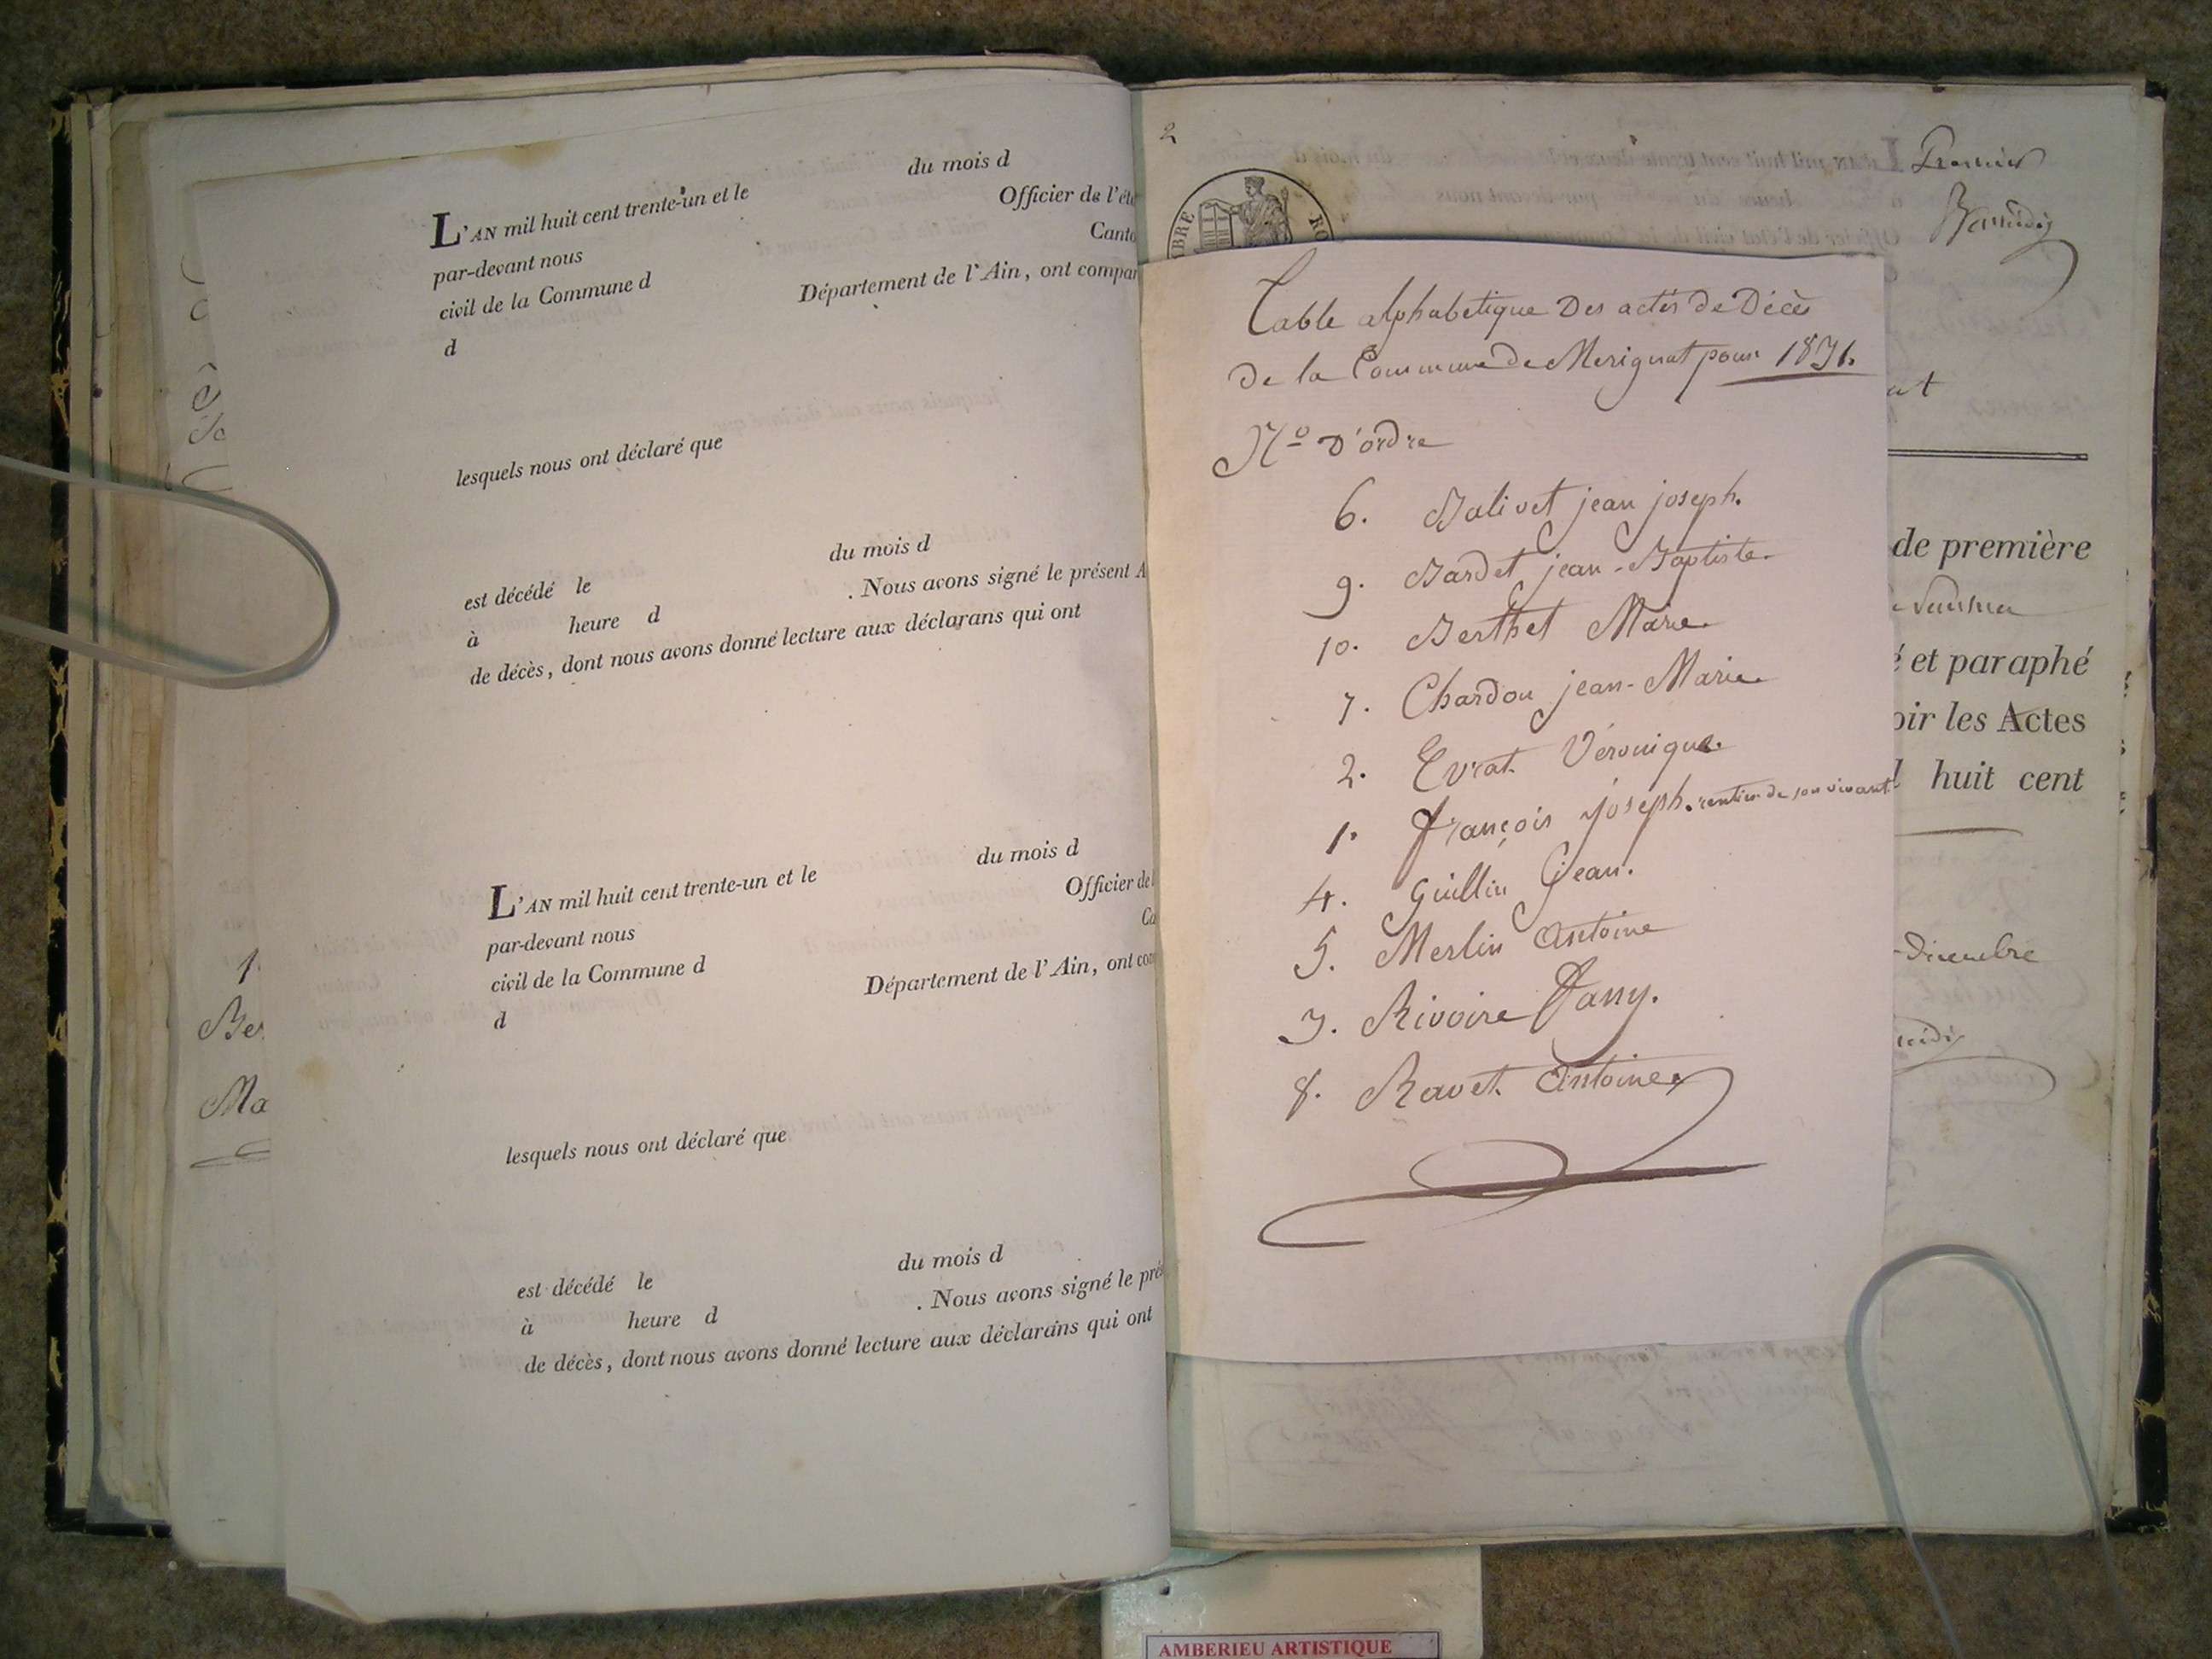 du mois d
L'AN mil huit cent trente-un et le
Officier de l'éta
par-devant nous
Canto
civil de la Commune d
Département de l'Ain, ont compar
d
lesquels nous ont déclaré que
du mois d
est décédé le
. Nous avons signé le présent A
à heure d
de décès, dont nous avons donné lecture aux déclarans qui ont
du mois d
L'AN mil huit cent trente-un et le
Officier de l
par-devant nous
Co
civil de la Commune d
Département de l'Ain, ont com
d
lesquels nous ont déclaré que
du mois d
est décédé le
. Nous avons signé le prés
à heure d
de décès, dont nous avons donné lecture aux déclarans qui ont
1.
Be
Ma
2
Premier
BRE RO
Table alphabetique Des actes de Décès
De la Commune de Merignat pour 1831.
N.o D'ordre
6. Balivet jean joseph.
9. Bardet jean-Baptiste.
10. Berthet Marie.
7. Chardon jean-Marie.
2. Evrat Véronique.
1. françois joseph. rentier de son vivant
4. Guillin jean.
5. Merlin Antoine
3. Rivoire fany.
8. Ravet Antoine
at
de première
é et paraphé
oir les Actes
l huit cent
Décembre
AMBERIEU ARTISTIQUE